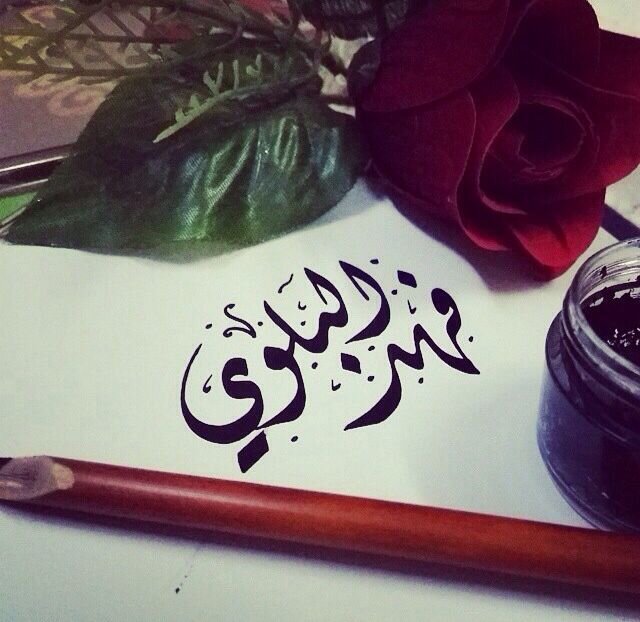 فهد البلوي